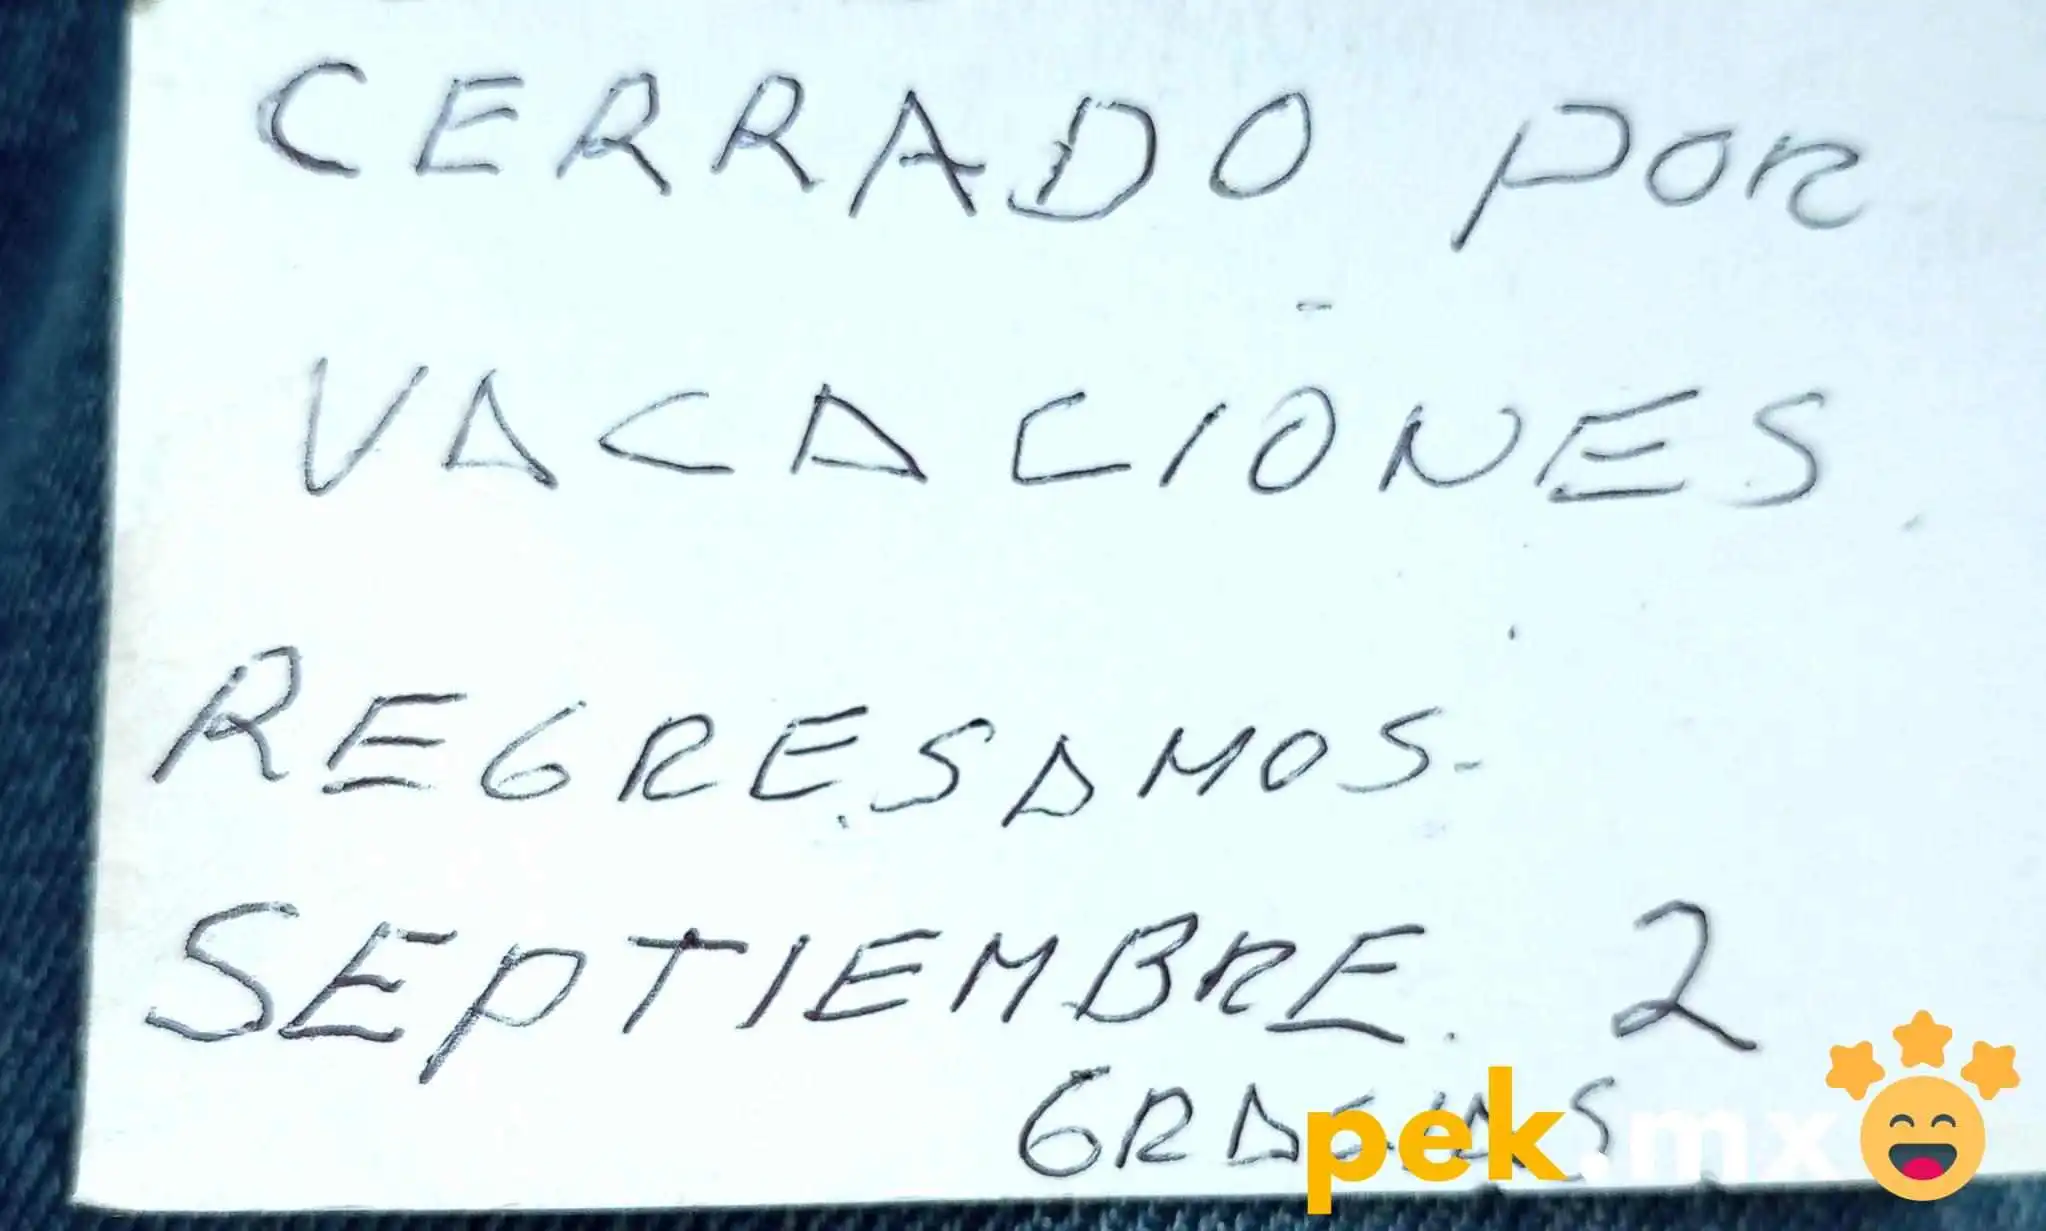 CERRADO POR
VACACIONES
REGRESAMOS
SEPTIEMBRE. 2
GRACIAS
pek.mx